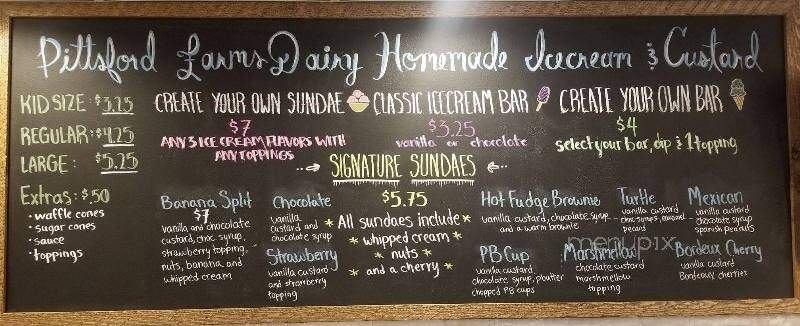 Pittsford Farms Dairy Homemade Icecream & Custard
KID SIZE: $3.25
REGULAR: $4.25
LARGE: $5.25
Extras: $.50
• waffle cones
• sugar cones
• sauce
• toppings
CREATE YOUR OWN SUNDAE
$7
ANY 3 ICE CREAM FLAVORS WITH
ANY TOPPINGS
CLASSIC ICECREAM BAR
$3.25
vanilla or chocolate
CREATE YOUR OWN BAR
$4
select your bar, dip & 1 topping
SIGNATURE SUNDAES
$5.75
* All sundaes include *
* whipped cream *
* nuts *
* and a cherry *
Banana Split
$7
vanilla and chocolate
custard, choc syrup,
strawberry topping,
nuts, banana, and
whipped cream
Chocolate
vanilla
custard and
chocolate syrup
Strawberry
vanilla custard
and strawberry
topping
Hot Fudge Brownie
vanilla custard, chocolate syrup
and a warm brownie
Turtle
vanilla custard
choc syrup, caramel
pecans
Mexican
vanilla custard
chocolate syrup
spanish peanuts
PB Cup
vanilla custard
chocolate syrup,
chopped PB cups
Marshmallow
chocolate custard
marshmallow
topping
Bordeux Cherry
vanilla custard
Bordeaux cherries
menupix